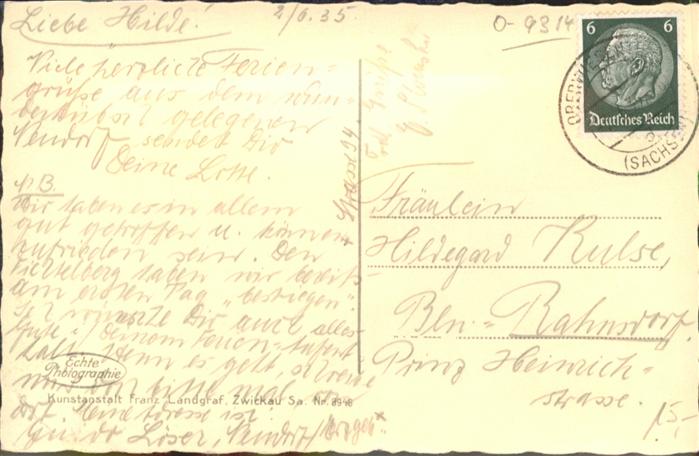 Liebe Hilde! 2/6.35.
O-9314
6 6
Deutsches Reich
(SACHSEN)
Viele herzliche Ferien-
grüße aus dem wun-
gelegenen
Neudorf sendet Dir
Deine Lotte.
NB.
Wir haben es in allem
gut getroffen u. können
zufrieden sein. Den
Fichtelberg haben wir bereits
am ersten Tag "bestiegen"
Ich wünsche Dir auch alles
Gute zu Deinem Ferien-Aufent-
halt. Wenn es geht, schreibe
mir bitte mal
dort. Meine Adresse ist:
Guido Löser, Neudorf/Erzgeb.
Strasse 94
Grüße
Fräulein
Hildegard Kulse,
Bln.-Rahnsdorf
Prinz Heinrich-
strasse.
15,-
Echte
Photographie
Kunstanstalt Franz Landgraf, Zwickau Sa. Nr. 8948